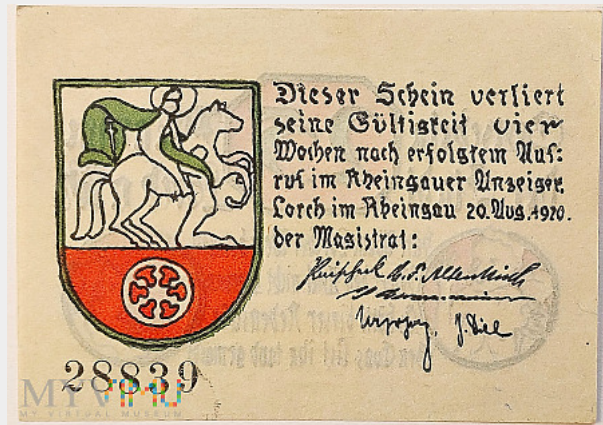 Dieser Schein verliert
seine Gültigkeit vier
Wochen nach erfolgtem Auf:
ruf im Rheingauer Anzeiger.
Lorch im Rheingau 20. Aug. 1920.
der Magistrat:
28839
MYVIMU
MY VIRTUAL MUSEUM